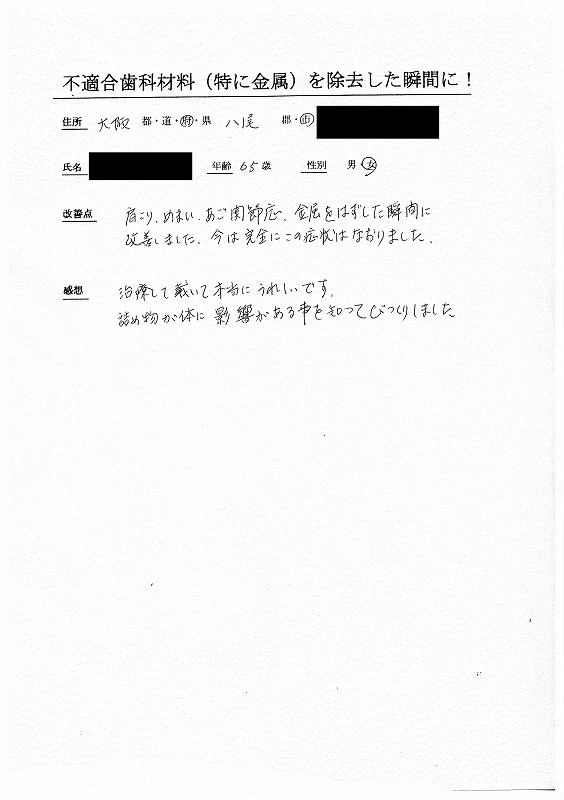 不適合歯科材料（特に金属）を除去した瞬間に！
住所 大阪 都・道・府・県 八尾 郡・市
氏名 年齢 65歳 性別 男・女
改善点 肩こり、めまい、あご関節症、金属をはずした瞬間に
改善しました、今は完全にこの症状はなおりました、
感想 治療して戴いて本当にうれしいです。
詰め物が体に影響がある事を知ってびっくりしました